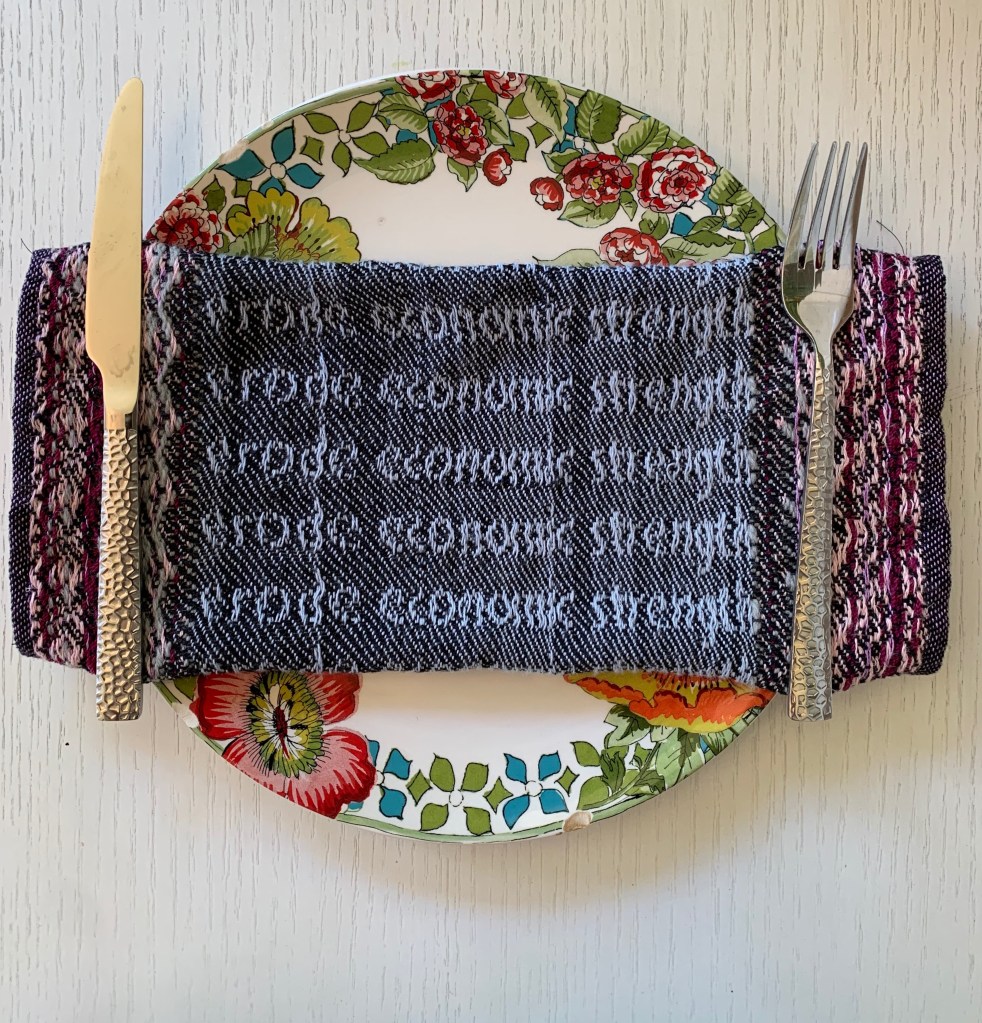 erode economic strength
erode economic strength
erode economic strength
erode economic strength
erode economic strength